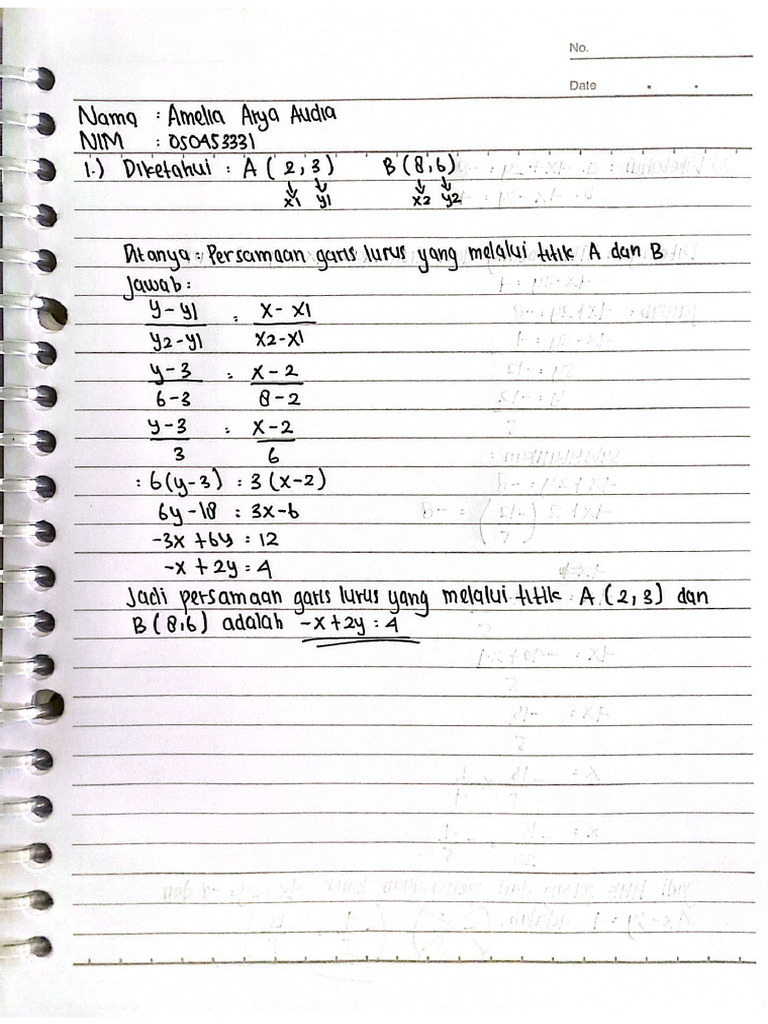 No.
Date
Nama : Amelia Arya Audia
NIM : 050453331
1.) Diketahui : A ( 2 , 3 ) B ( 8 , 6 )
x1 y1 x2 y2
Ditanya : Persamaan garis lurus yang melalui titik A dan B
Jawab :
y - y1 = x - x1
y2 - y1 x2 - x1
y - 3 = x - 2
6 - 3 8 - 2
y - 3 = x - 2
3 6
= 6 (y - 3) = 3 (x - 2)
6y - 18 = 3x - 6
-3x + 6y = 12
-x + 2y = 4
Jadi persamaan garis lurus yang melalui titik A ( 2 , 3 ) dan
B ( 8 , 6 ) adalah -x + 2y = 4